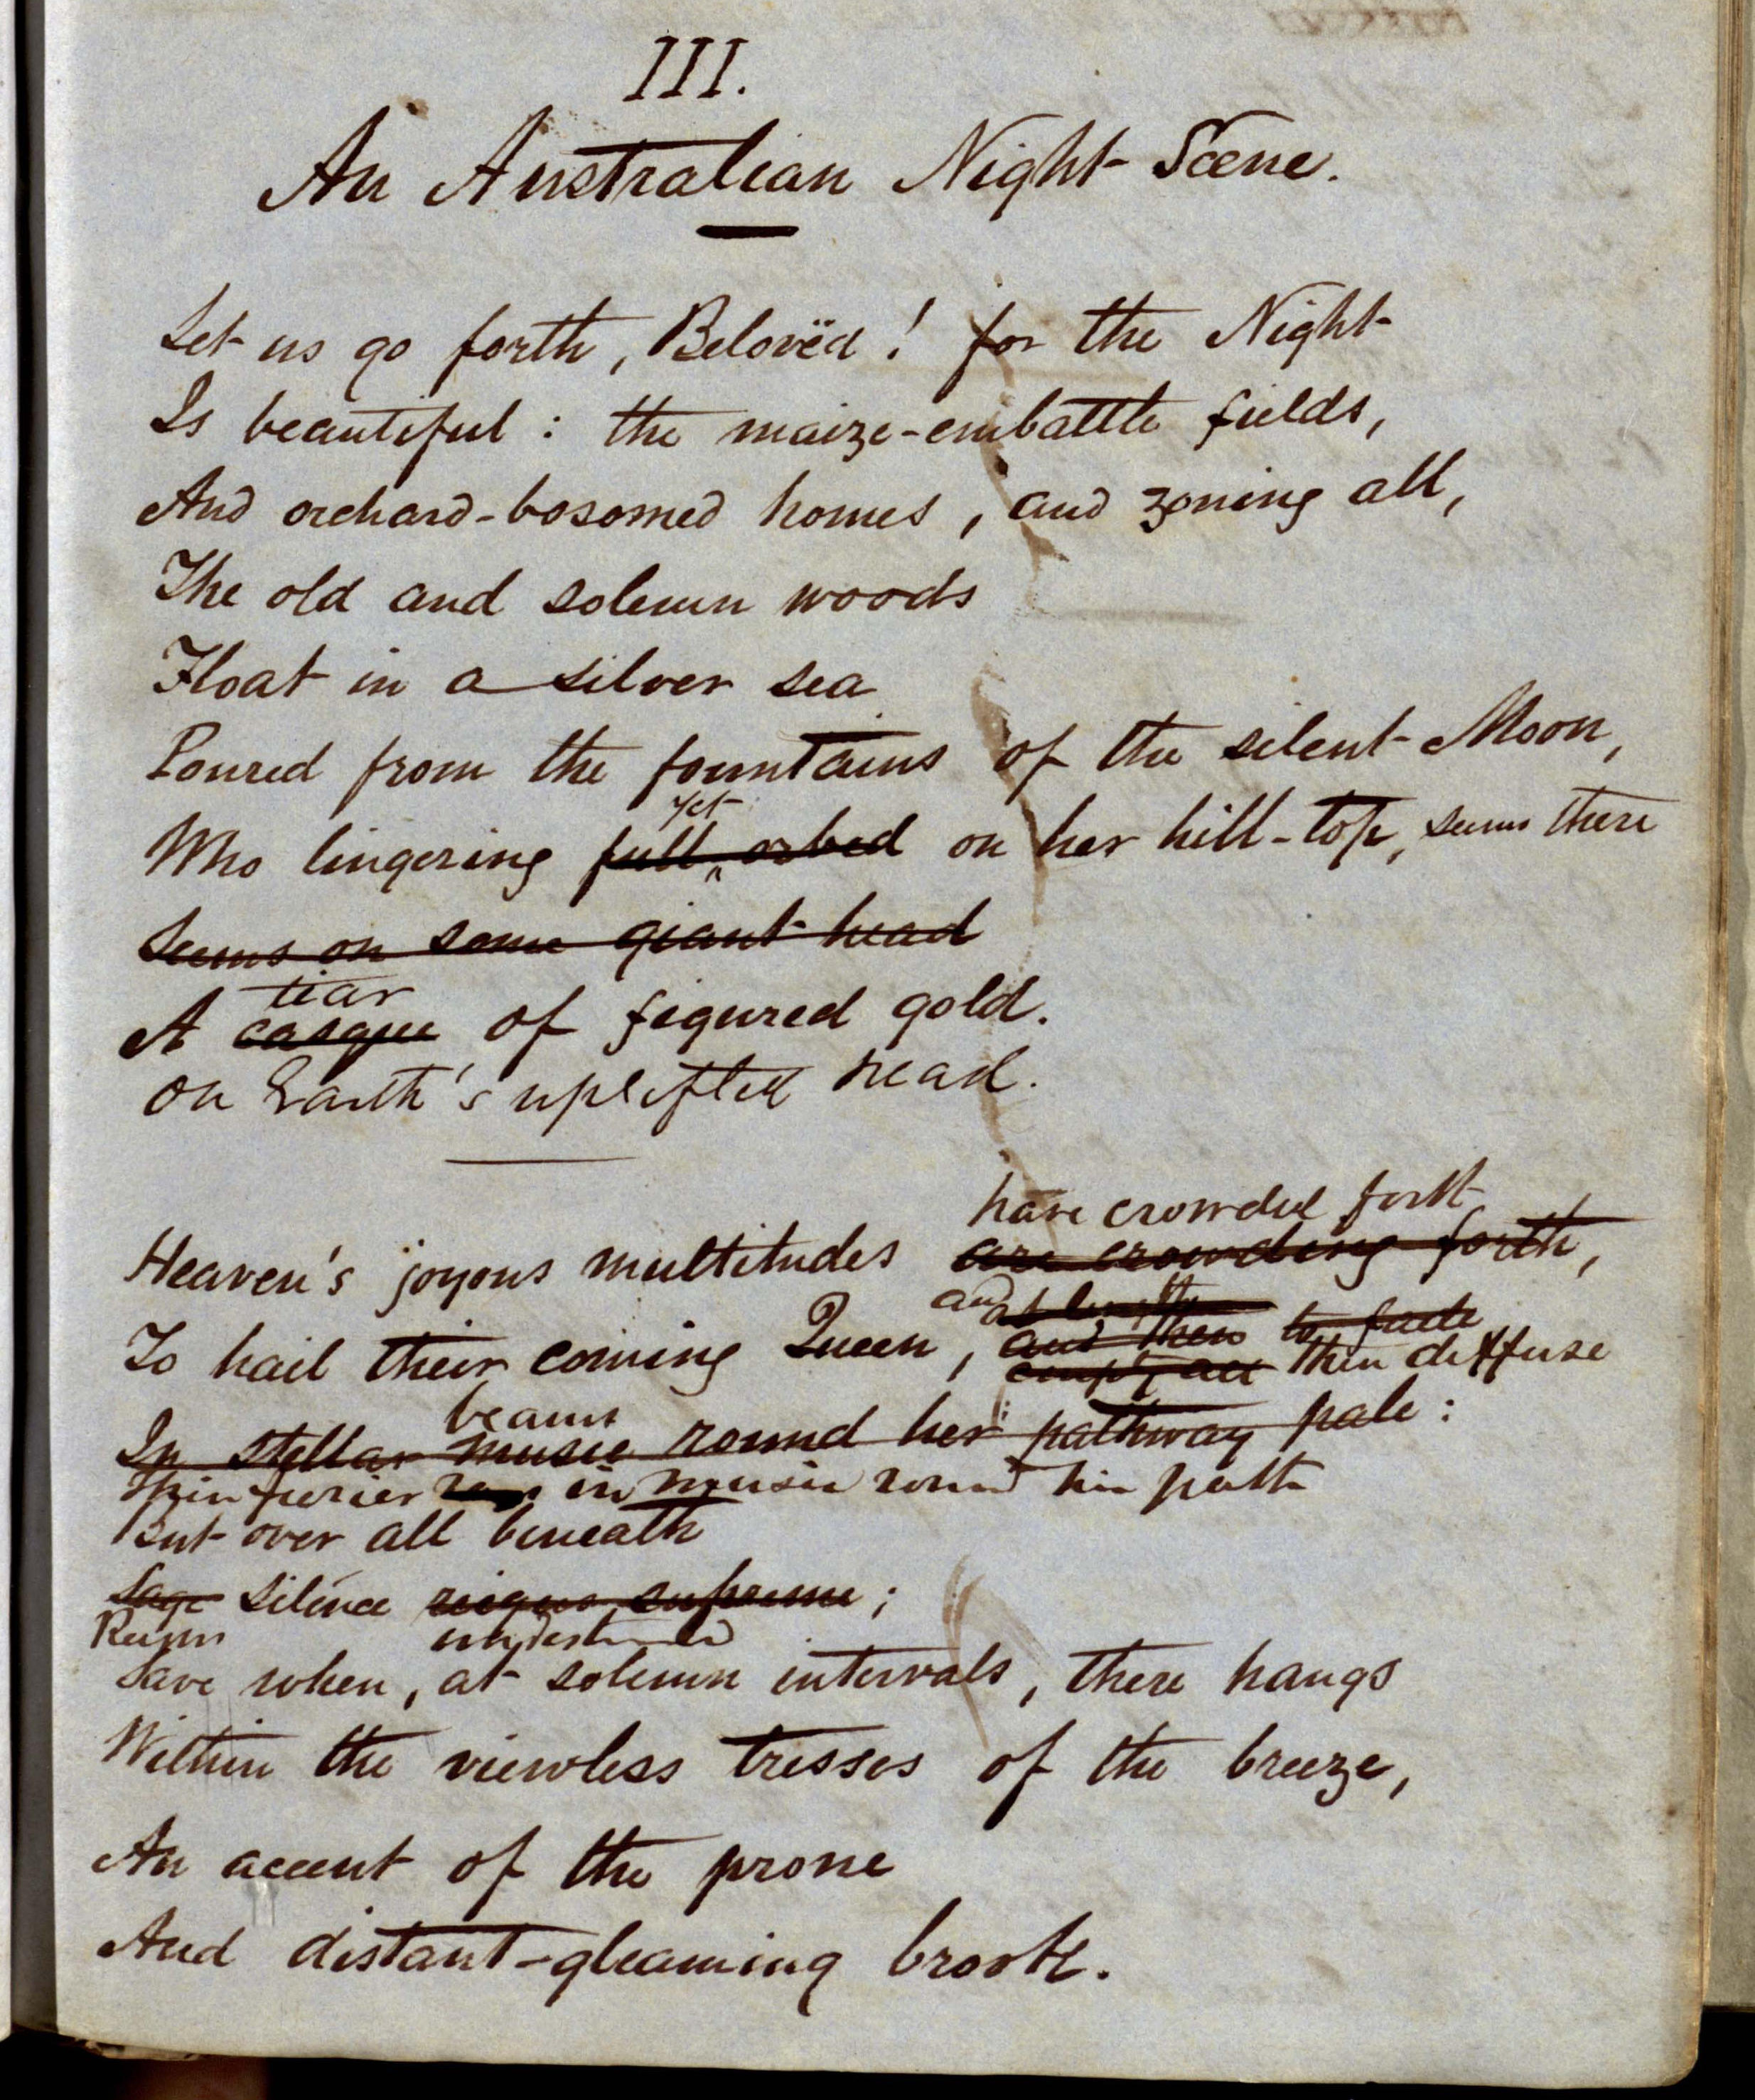 III.
An Australian Night Scene.
Let us go forth, Belovëd! for the Night
Is beautiful: the maize-embattle fields,
And orchard-bosomed homes, and zoning all,
The old and solemn woods
Float in a silver sea
Poured from the fountains of the silent Moon,
yet
Who lingering full orbed on her hill-top, seems there
Seems on some giant head
tiar
A casque of figured gold.
on Earth's uplifted head.
have crowded forth
Heaven's joyous multitudes are crowding forth,
and at length
To hail their coming Queen, and then to fade
then diffuse
beams
In stellar music round her pathway pale:
in music round her path
But over all beneath
Sage silence reigns supreme;
Reigns undestined
Save when, at solemn intervals, there hangs
Within the viewless tresses of the breeze,
An accent of the prone
And distant-gleaming brook.